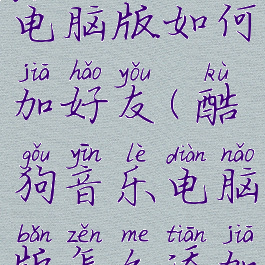 电脑版如何
jiā hǎo yǒu kù
加好友(酷
gǒu yīn lè diàn nǎo
狗音乐电脑
bǎn zěn me tiān jiā
版怎么添加